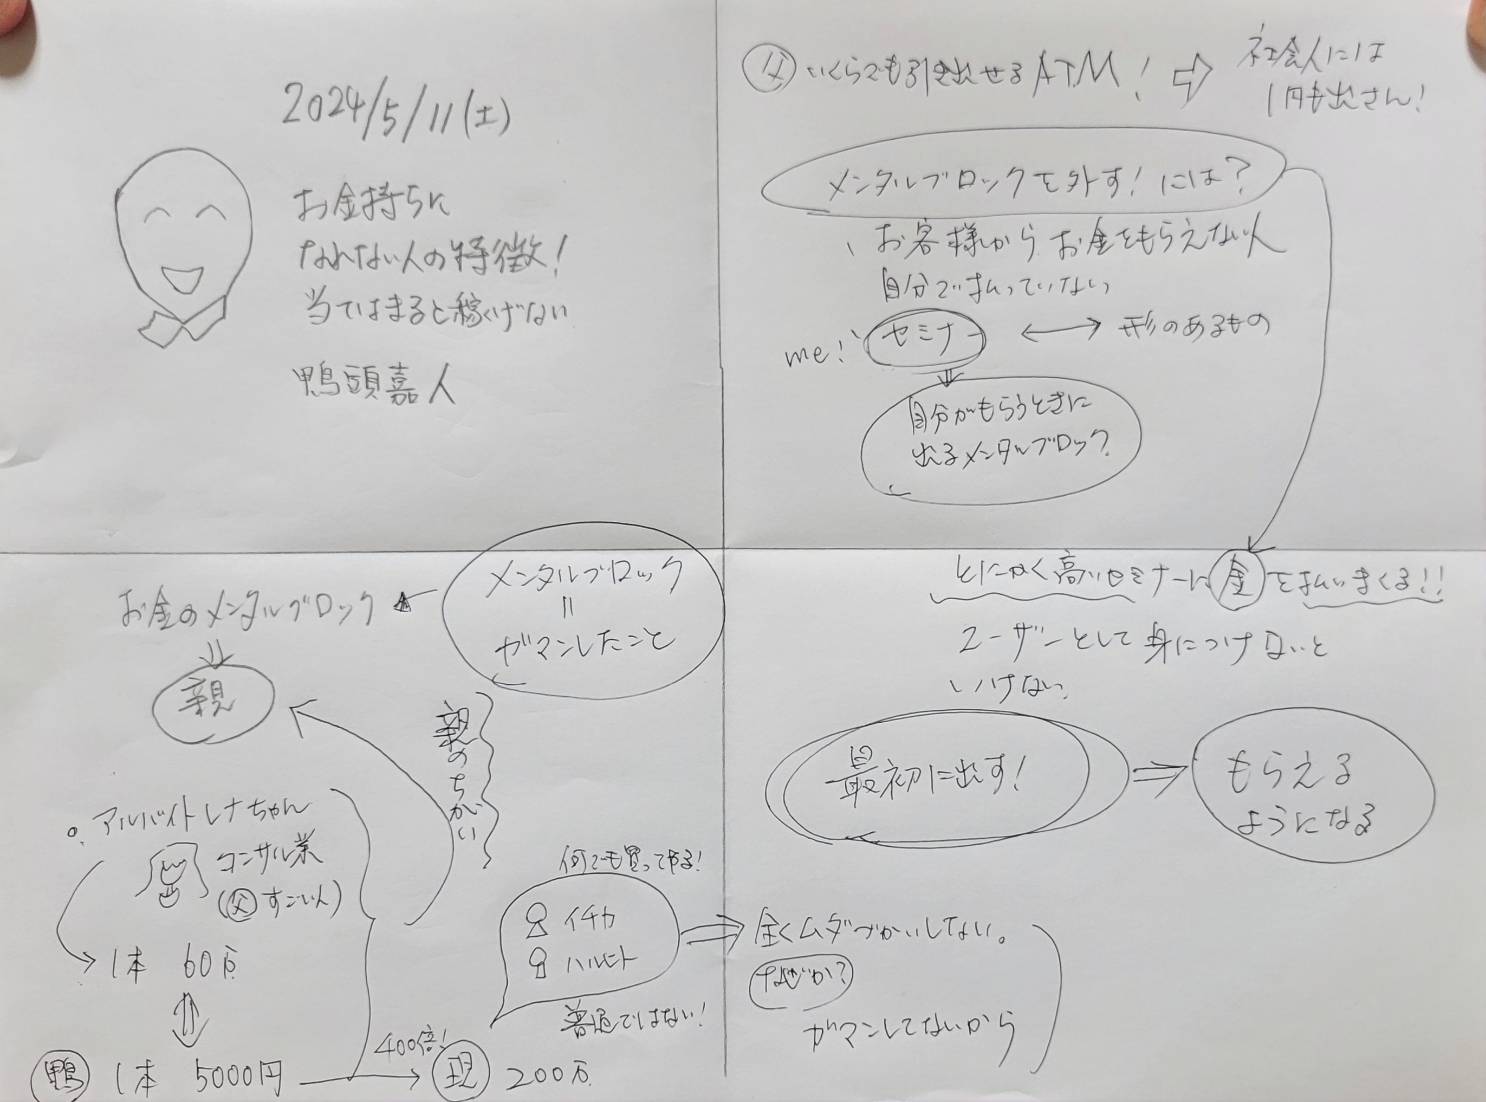 2024/5/11(土)
お金持ちに
なれない人の特徴!
当てはまると稼げない
鴨頭嘉人
メンタルブロック
||
ガマンしたこと
お金のメンタルブロック
親
親のちがい
アルバイトレナちゃん
コンサル業
(父すごい人)
1本 60万
鴨 1本 5000円
400倍!
現 200万
何でも買ってやる!
イチカ
ハルヒト
普通ではない!
父 いくらでも引き出せるATM! ⇨ 社会人には
1円も出さん!
メンタルブロックを外す!には?
、お客様からお金をもらえない人
自分で払っていない
me! セミナー ⟷ 形のあるもの
自分がもらうときに
出るメンタルブロック
とにかく高いセミナーに金を払いまくる!!
ユーザーとして身につけないと
いけない
最初に出す! ⇒ もらえる
ようになる
全くムダづかいしてない。
なぜか?
ガマンしてないから